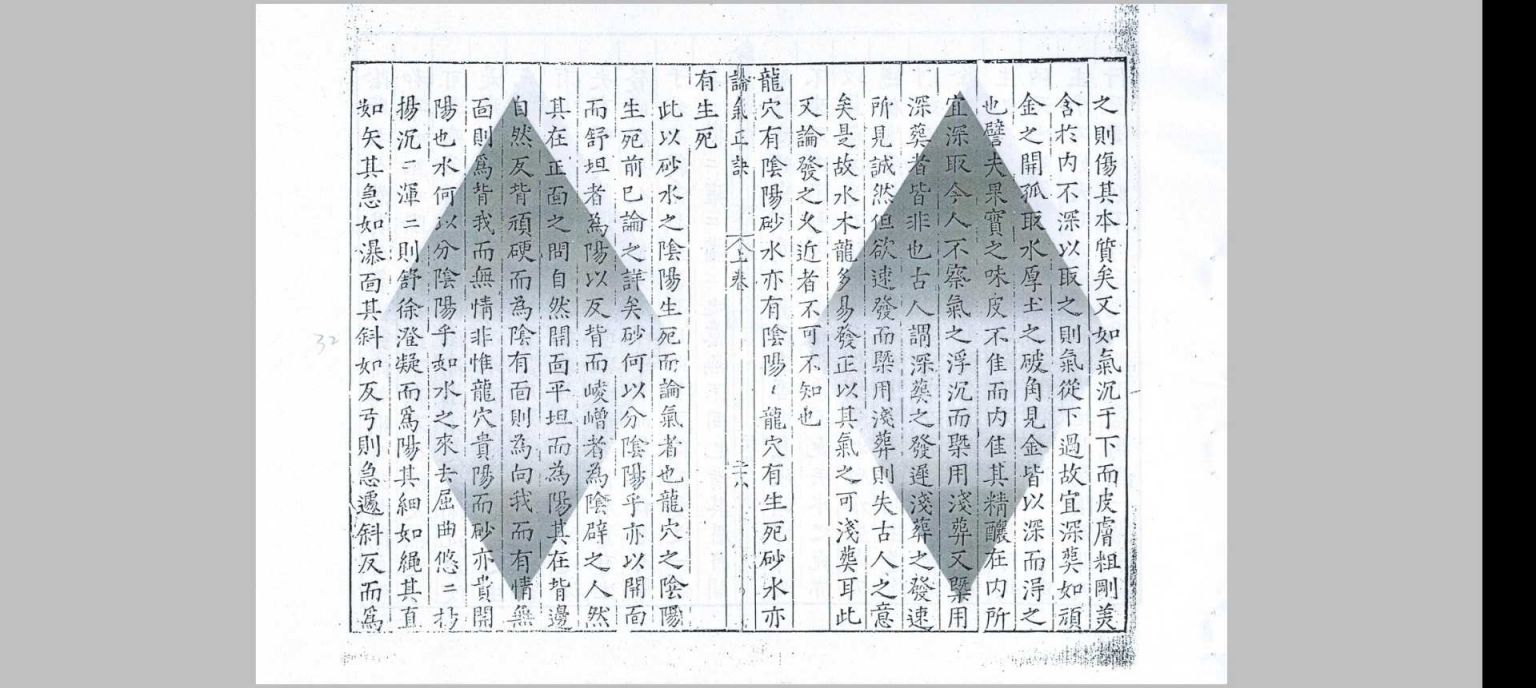 之則傷其本質矣又如氣沉于下而皮膚粗剛美
含於内不深以取之則氣從下過故宜深葬如頑
金之開孤取水厚土之破角見金皆以深而淂之
也譬夫果實之味皮不佳而内佳其精釀在内所
宜深取今人不察氣之浮沉而槩用淺葬又槩用
深葬者皆非也古人謂深葬之發遲淺葬之發速
所見誠然但欲速發而槩用淺葬則失古人之意
矣是故水木龍多易發正以其氣之可淺葬耳此
又論發之久近者不可不知也
龍穴有陰陽砂水亦有陰陽〻龍穴有生死砂水亦
論氣正訣 上卷 二十八
有生死
此以砂水之陰陽生死而論氣者也龍穴之陰陽
生死前已論之詳矣砂何以分陰陽乎亦以開面
而舒坦者為陽以反背而崚嶒者為陰辟之人然
其在正面之問自然開面平坦而為陽其在背邊
自然反背頑硬而為陰有面則為向我而有情無
面則爲背我而無情非惟龍穴貴陽而砂亦貴開
陽也水何以分陰陽乎如水之來去屈曲悠〻抑
揚沉〻渾〻則舒徐澄凝而爲陽其細如繩其直
如矢其急如瀑面其斜如反弓則急遽斜反而爲
32